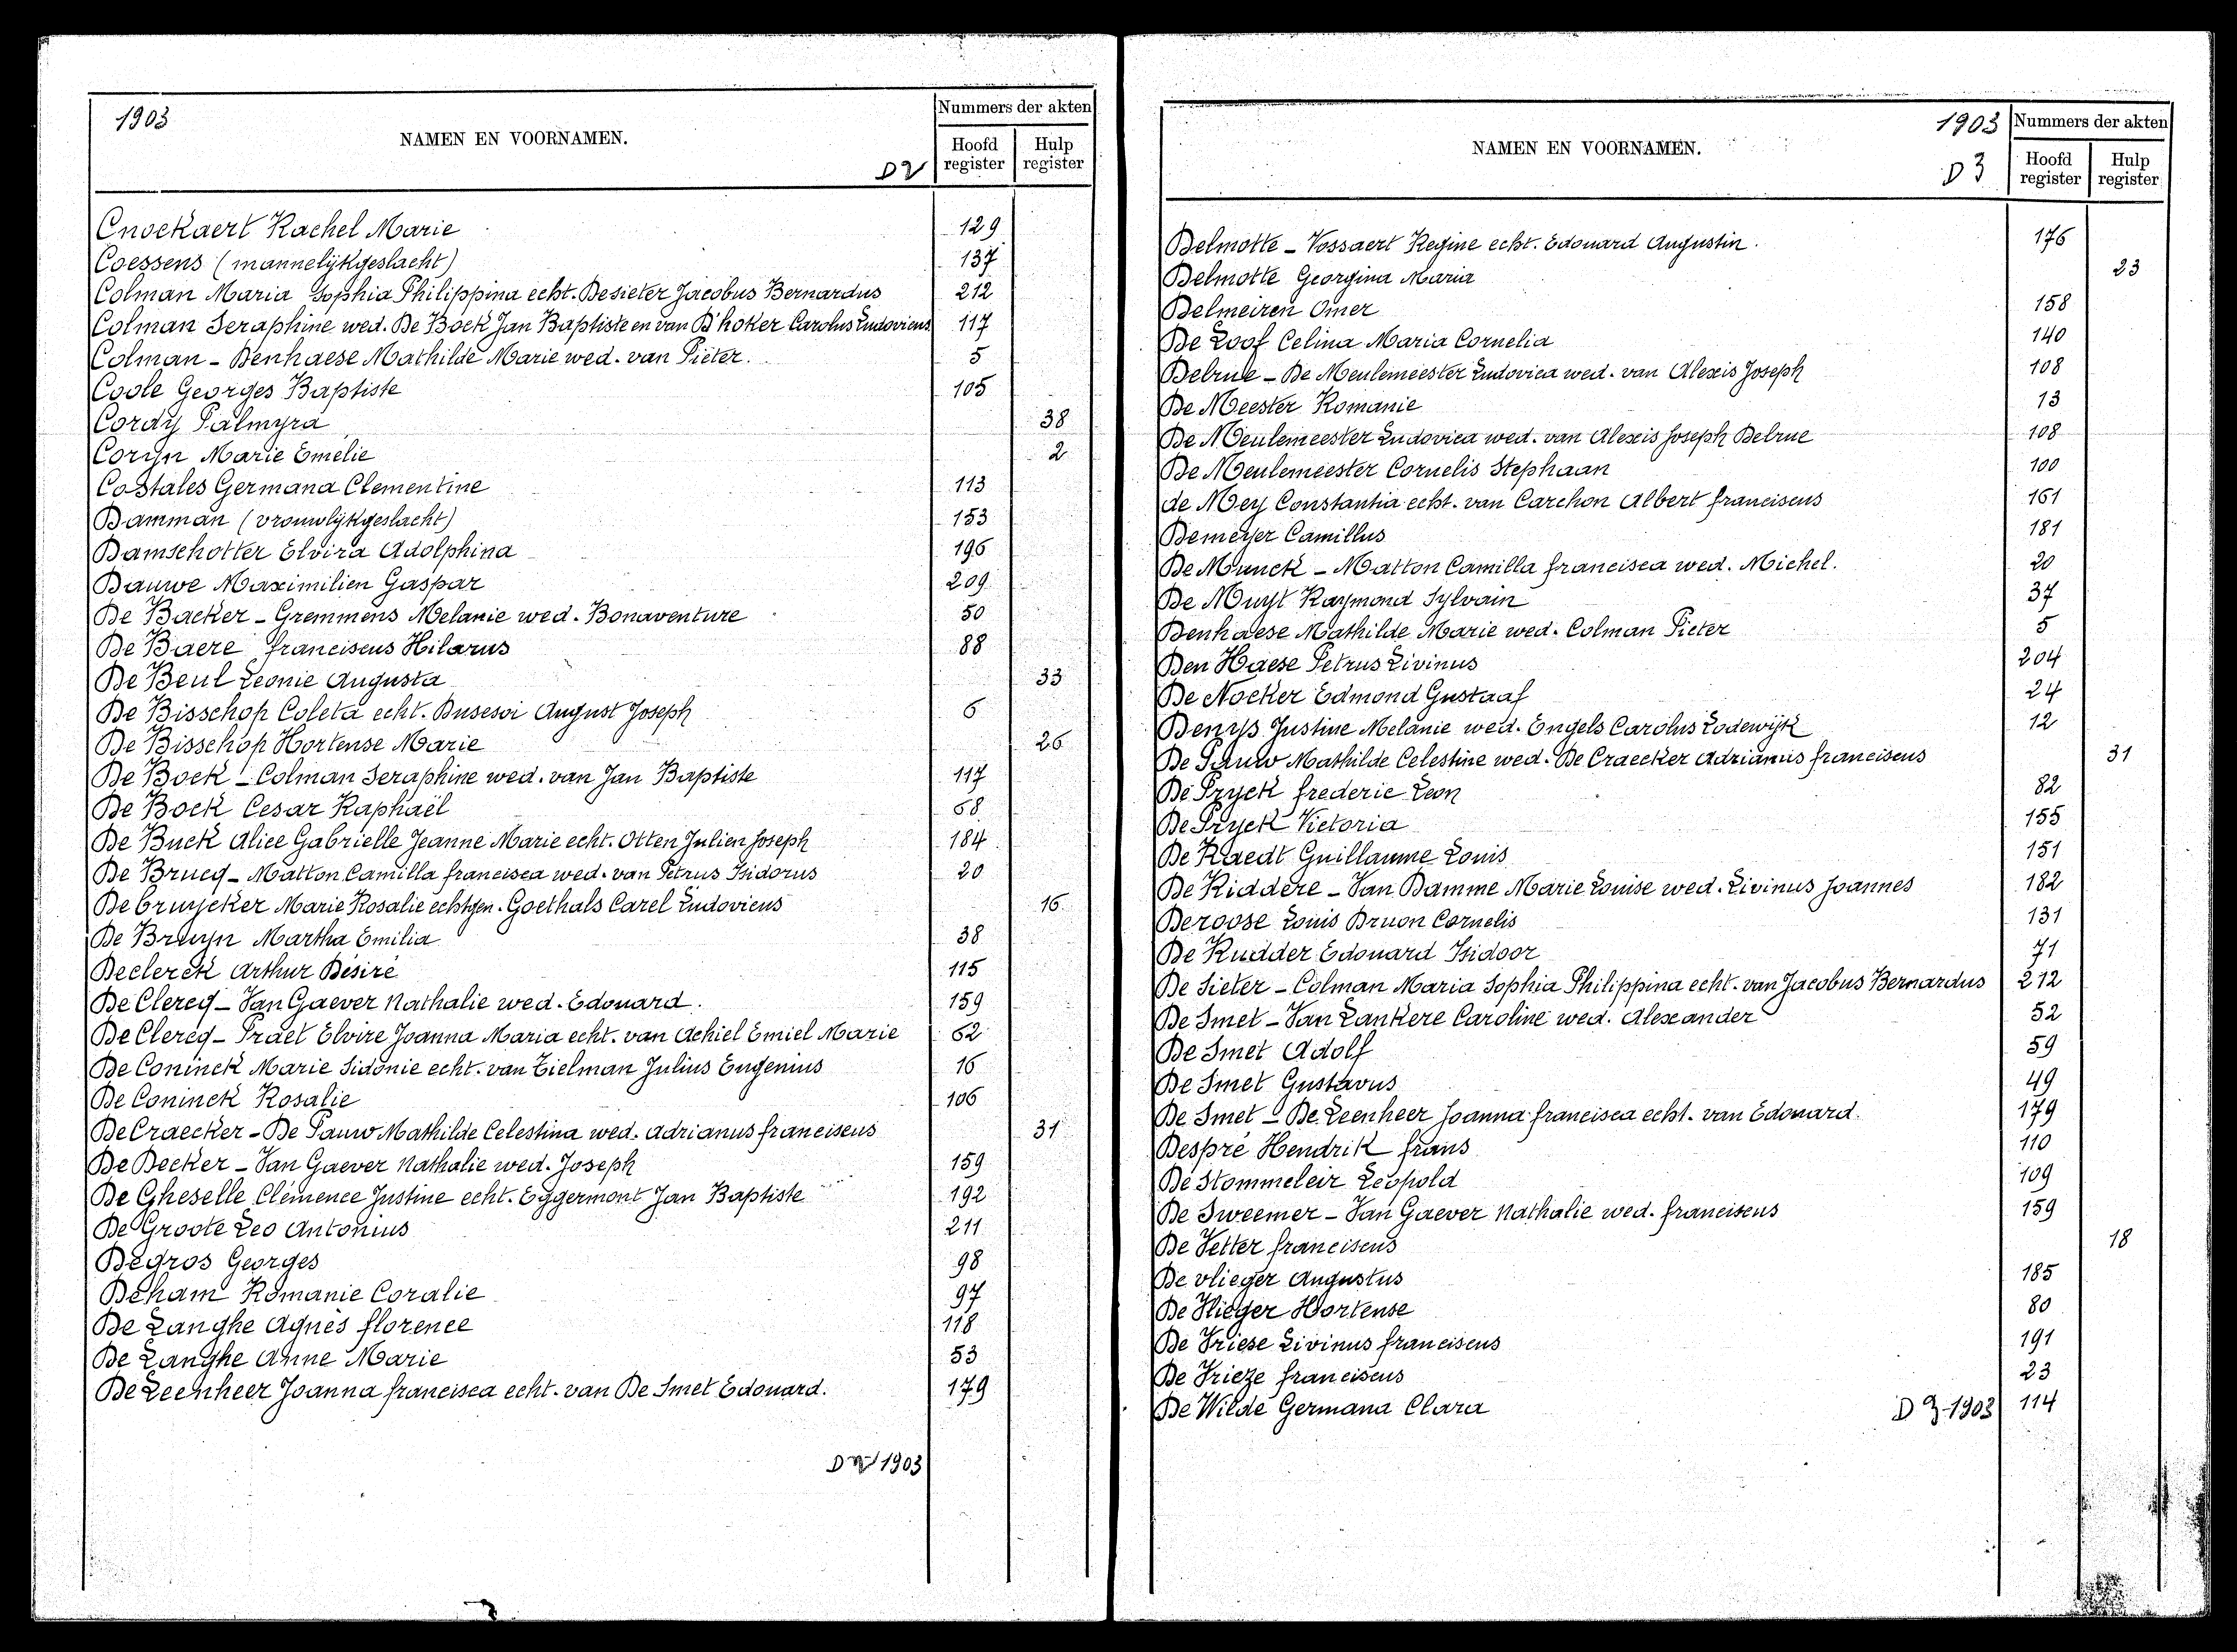 1903
NAMEN EN VOORNAMEN.
D2
Nummers der akten
Hoofd register
Hulp register
Cnockaert Rachel Marie 129
Coessens (mannelijkgeslacht) 137
Colman Maria Sophia Philippina echt. Desieter Jacobus Bernardus 212
Colman Seraphine wed. De Bock Jan Baptiste en van D'hoker Carolus Ludovicus 117
Colman - Denhaese Mathilde Marie wed. van Pieter. 5
Coole Georges Baptiste 105
Cordy Palmyra 38
Coryn Marie Emelie 2
Costales Germana Clementine 113
Damman (vrouwlijkgeslacht) 153
Damschotter Elvira Adolphina 196
Dauwe Maximilien Gaspar 209
De Backer - Gremmens Melanie wed. Bonaventure 50
De Baere franciscus Hilarus 88
De Beul Leonie Augusta 33
De Bisschop Coleta echt. Dusesoi August Joseph 6
De Bisschop Hortense Marie 26
De Bock - Colman Seraphine wed. van Jan Baptiste 117
De Bock Cesar Raphaël 68
De Buck Alice Gabrielle Jeanne Marie echt. Otten Julien Joseph 184
De Brucq - Matton Camilla francisca wed. van Petrus Isidorus 20
De bruycker Marie Rosalie echtgen. Goethals Carel Ludovicus 16
De Bruyn Martha Emilia 38
Declerck Arthur Désiré 115
De Clercq - Van Gaever Nathalie wed. Edouard. 159
De Clercq - Praet Elvire Joanna Maria echt. van Achiel Emiel Marie 62
De Coninck Marie Sidonie echt. van Tielman Julius Eugenius 16
De Coninck Rosalie 106
De Craecker - De Pauw Mathilde Celestina wed. Adrianus franciscus 31
De Decker - Van Gaever Nathalie wed. Joseph 159
De Gheselle Clémence Justine echt. Eggermont Jan Baptiste 192
De Groote Leo Antonius 211
Degros Georges 98
Deham Romanie Coralie 97
De Langhe Agnès florence 118
De Langhe Anne Marie 53
De Leenheer Joanna francisca echt. van De Smet Edouard. 179
D2 1903
1903
NAMEN EN VOORNAMEN.
D3
Nummers der akten
Hoofd register
Hulp register
Delmotte - Vossaert Regine echt. Edouard Augustin. 176
Delmotte Georgina Maria 23
Delmeiren Omer 158
De Loof Celina Maria Cornelia 140
Delrue - De Meulemeester Ludovica wed. van Alexis Joseph 108
De Meester Romanie 13
De Meulemeester Ludovica wed. van Alexis Joseph Delrue 108
De Meulemeester Cornelis Stephaan 100
de Mey Constantia echt. van Carchon Albert franciscus 161
Demeyer Camillus 181
De Munck - Matton Camilla francisca wed. Michel. 20
De Muyt Raymond Sylvain 37
Denhaese Mathilde Marie wed. Colman Pieter 5
Den Haese Petrus Livinus 204
De Nocker Edmond Gustaaf 24
Denys Justine Melanie wed. Engels Carolus Lodewijk 12
De Pauw Mathilde Celestine wed. De Craecker Adrianus franciscus 31
De Pryck frederic Leon 82
De Pryck Victoria 155
De Raedt Guillaume Louis 151
De Riddere - Van Damme Marie Louise wed. Livinus Joannes 182
Deroose Louis Druon Cornelis 131
De Rudder Edouard Isidoor 71
De Sieter - Colman Maria Sophia Philippina echt. van Jacobus Bernardus 212
De Smet - Van Lankere Caroline wed. Alexander 52
De Smet Adolf 59
De Smet Gustavus 49
De Smet - De Leenheer Joanna francisca echt. van Edouard. 179
Despré Hendrik frans 110
De Stommeleir Leopold 109
De Sweemer - Van Gaever Nathalie wed. franciscus 159
De Vetter franciscus 18
De vlieger Augustus 185
De Vlieger Hortense 80
De Vriese Livinus franciscus 191
De Vrieze franciscus 23
De Wilde Germana Clara 114
D 3-1903